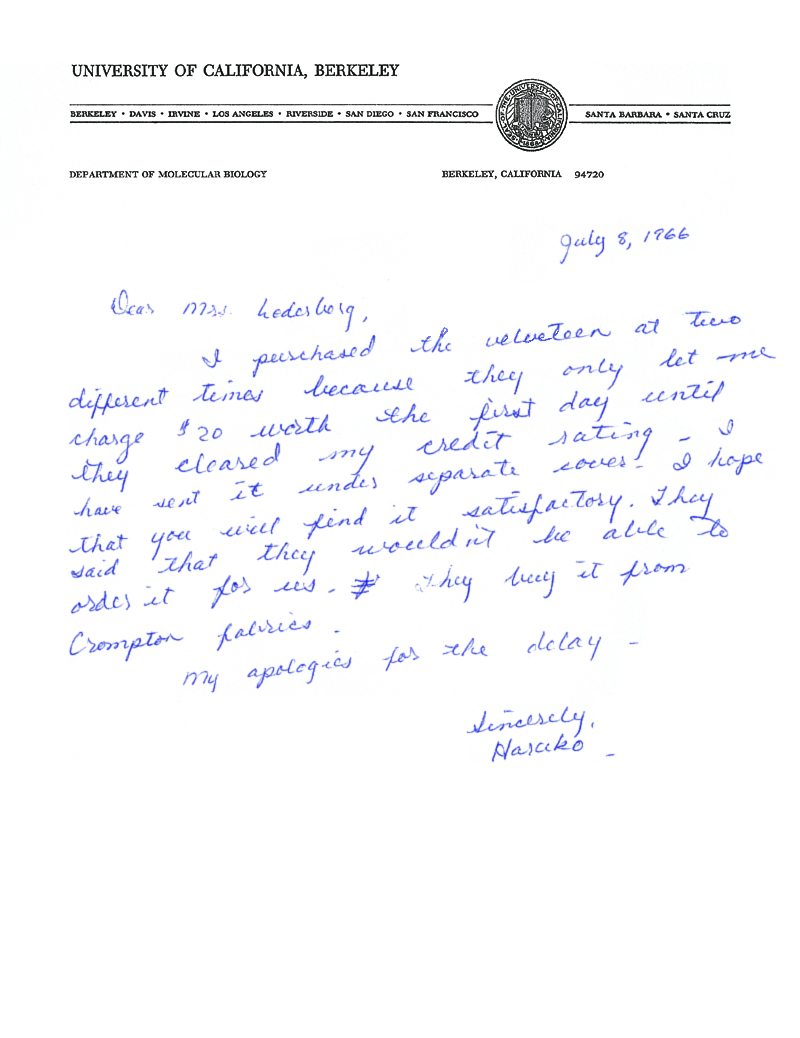 UNIVERSITY OF CALIFORNIA, BERKELEY
BERKELEY • DAVIS • IRVINE • LOS ANGELES • RIVERSIDE • SAN DIEGO • SAN FRANCISCO SANTA BARBARA • SANTA CRUZ
DEPARTMENT OF MOLECULAR BIOLOGY BERKELEY, CALIFORNIA 94720
July 8, 1966
Dear Mrs. Lederberg,
I purchased the velveteen at two
different times because they only let me
charge $20 worth the first day until
they cleared my credit rating - I
have sent it under separate cover - I hope
that you will find it satisfactory. They
said that they wouldn't be able to
order it for us. They buy it from
Crompton fabrics.
My apologies for the delay -
Sincerely,
Haruko -